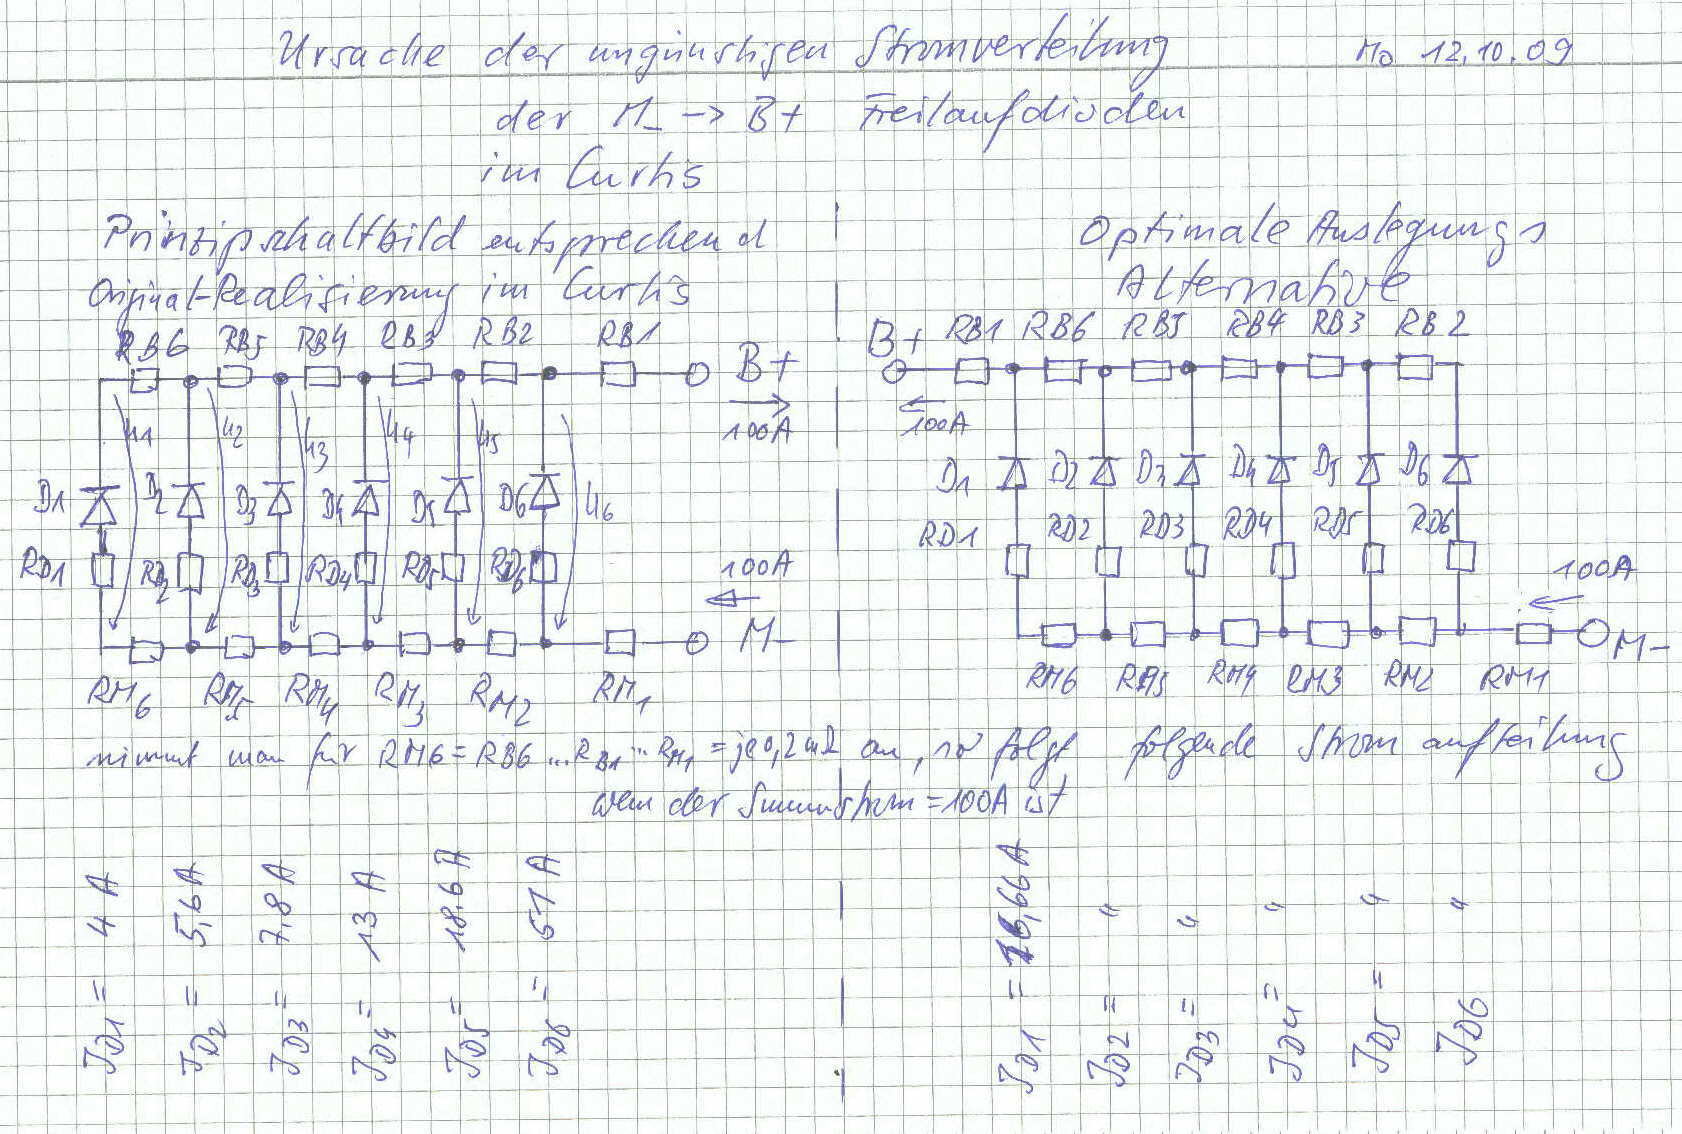 Ursache der ungünstigen Stromverteilung Mo 12.10.09
der M- -> B+ Freilaufdioden
im Curtis
Prinzipschaltbild entsprechend
Original-Realisierung im Curtis
RB6 RB5 RB4 RB3 RB2 RB1
B+
100A
U1 U2 U3 U4 U5 U6
D1 D2 D3 D4 D5 D6
RD1 RD2 RD3 RD4 RD5 RD6
100A
M-
RM6 RM5 RM4 RM3 RM2 RM1
Optimale Auslegungs
Alternative
B+ RB1 RB6 RB5 RB4 RB3 RB2
100A
D1 D2 D3 D4 D5 D6
RD1 RD2 RD3 RD4 RD5 RD6
100A
M-
RM6 RM5 RM4 RM3 RM2 RM1
nimmt man für RM6 = RB6 ... RB1 ... RM1 = je 0,2mΩ an, so folgt folgende Stromaufteilung
wenn der Summenstrom = 100A ist
ID1 = 4 A
ID2 = 5,6 A
ID3 = 7,8 A
ID4 = 13 A
ID5 = 18.6 A
ID6 = 51 A
ID1 = 16,66 A
ID2 = "
ID3 = "
ID4 = "
ID5 = "
ID6 "